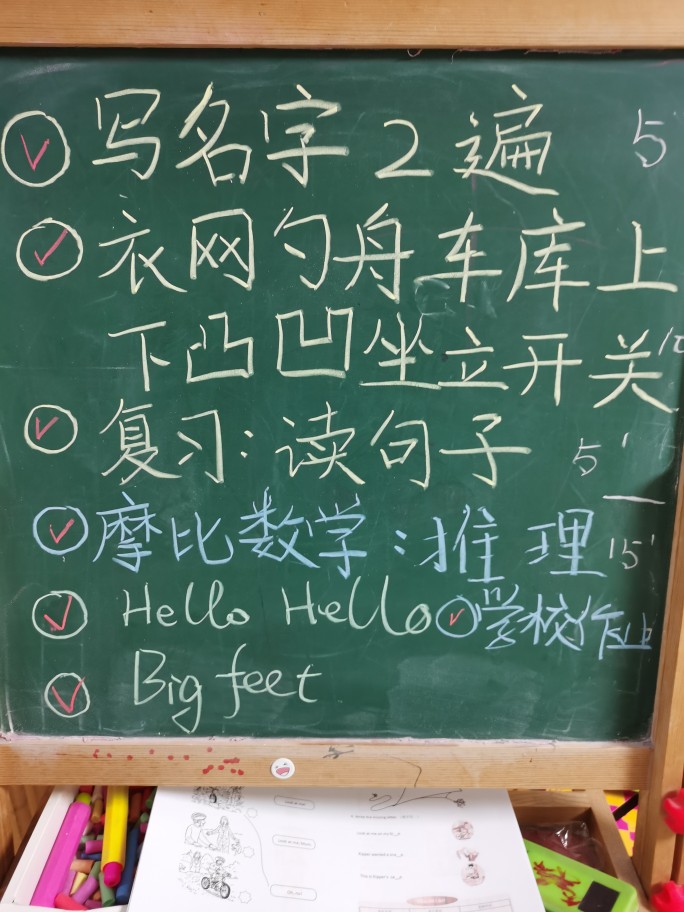 写名字2遍 5'
衣网勺舟车库上
下凸凹坐立开关
复习:读句子 5'
摩比数学:推理 15'
Hello Hello 学校作业
Big feet